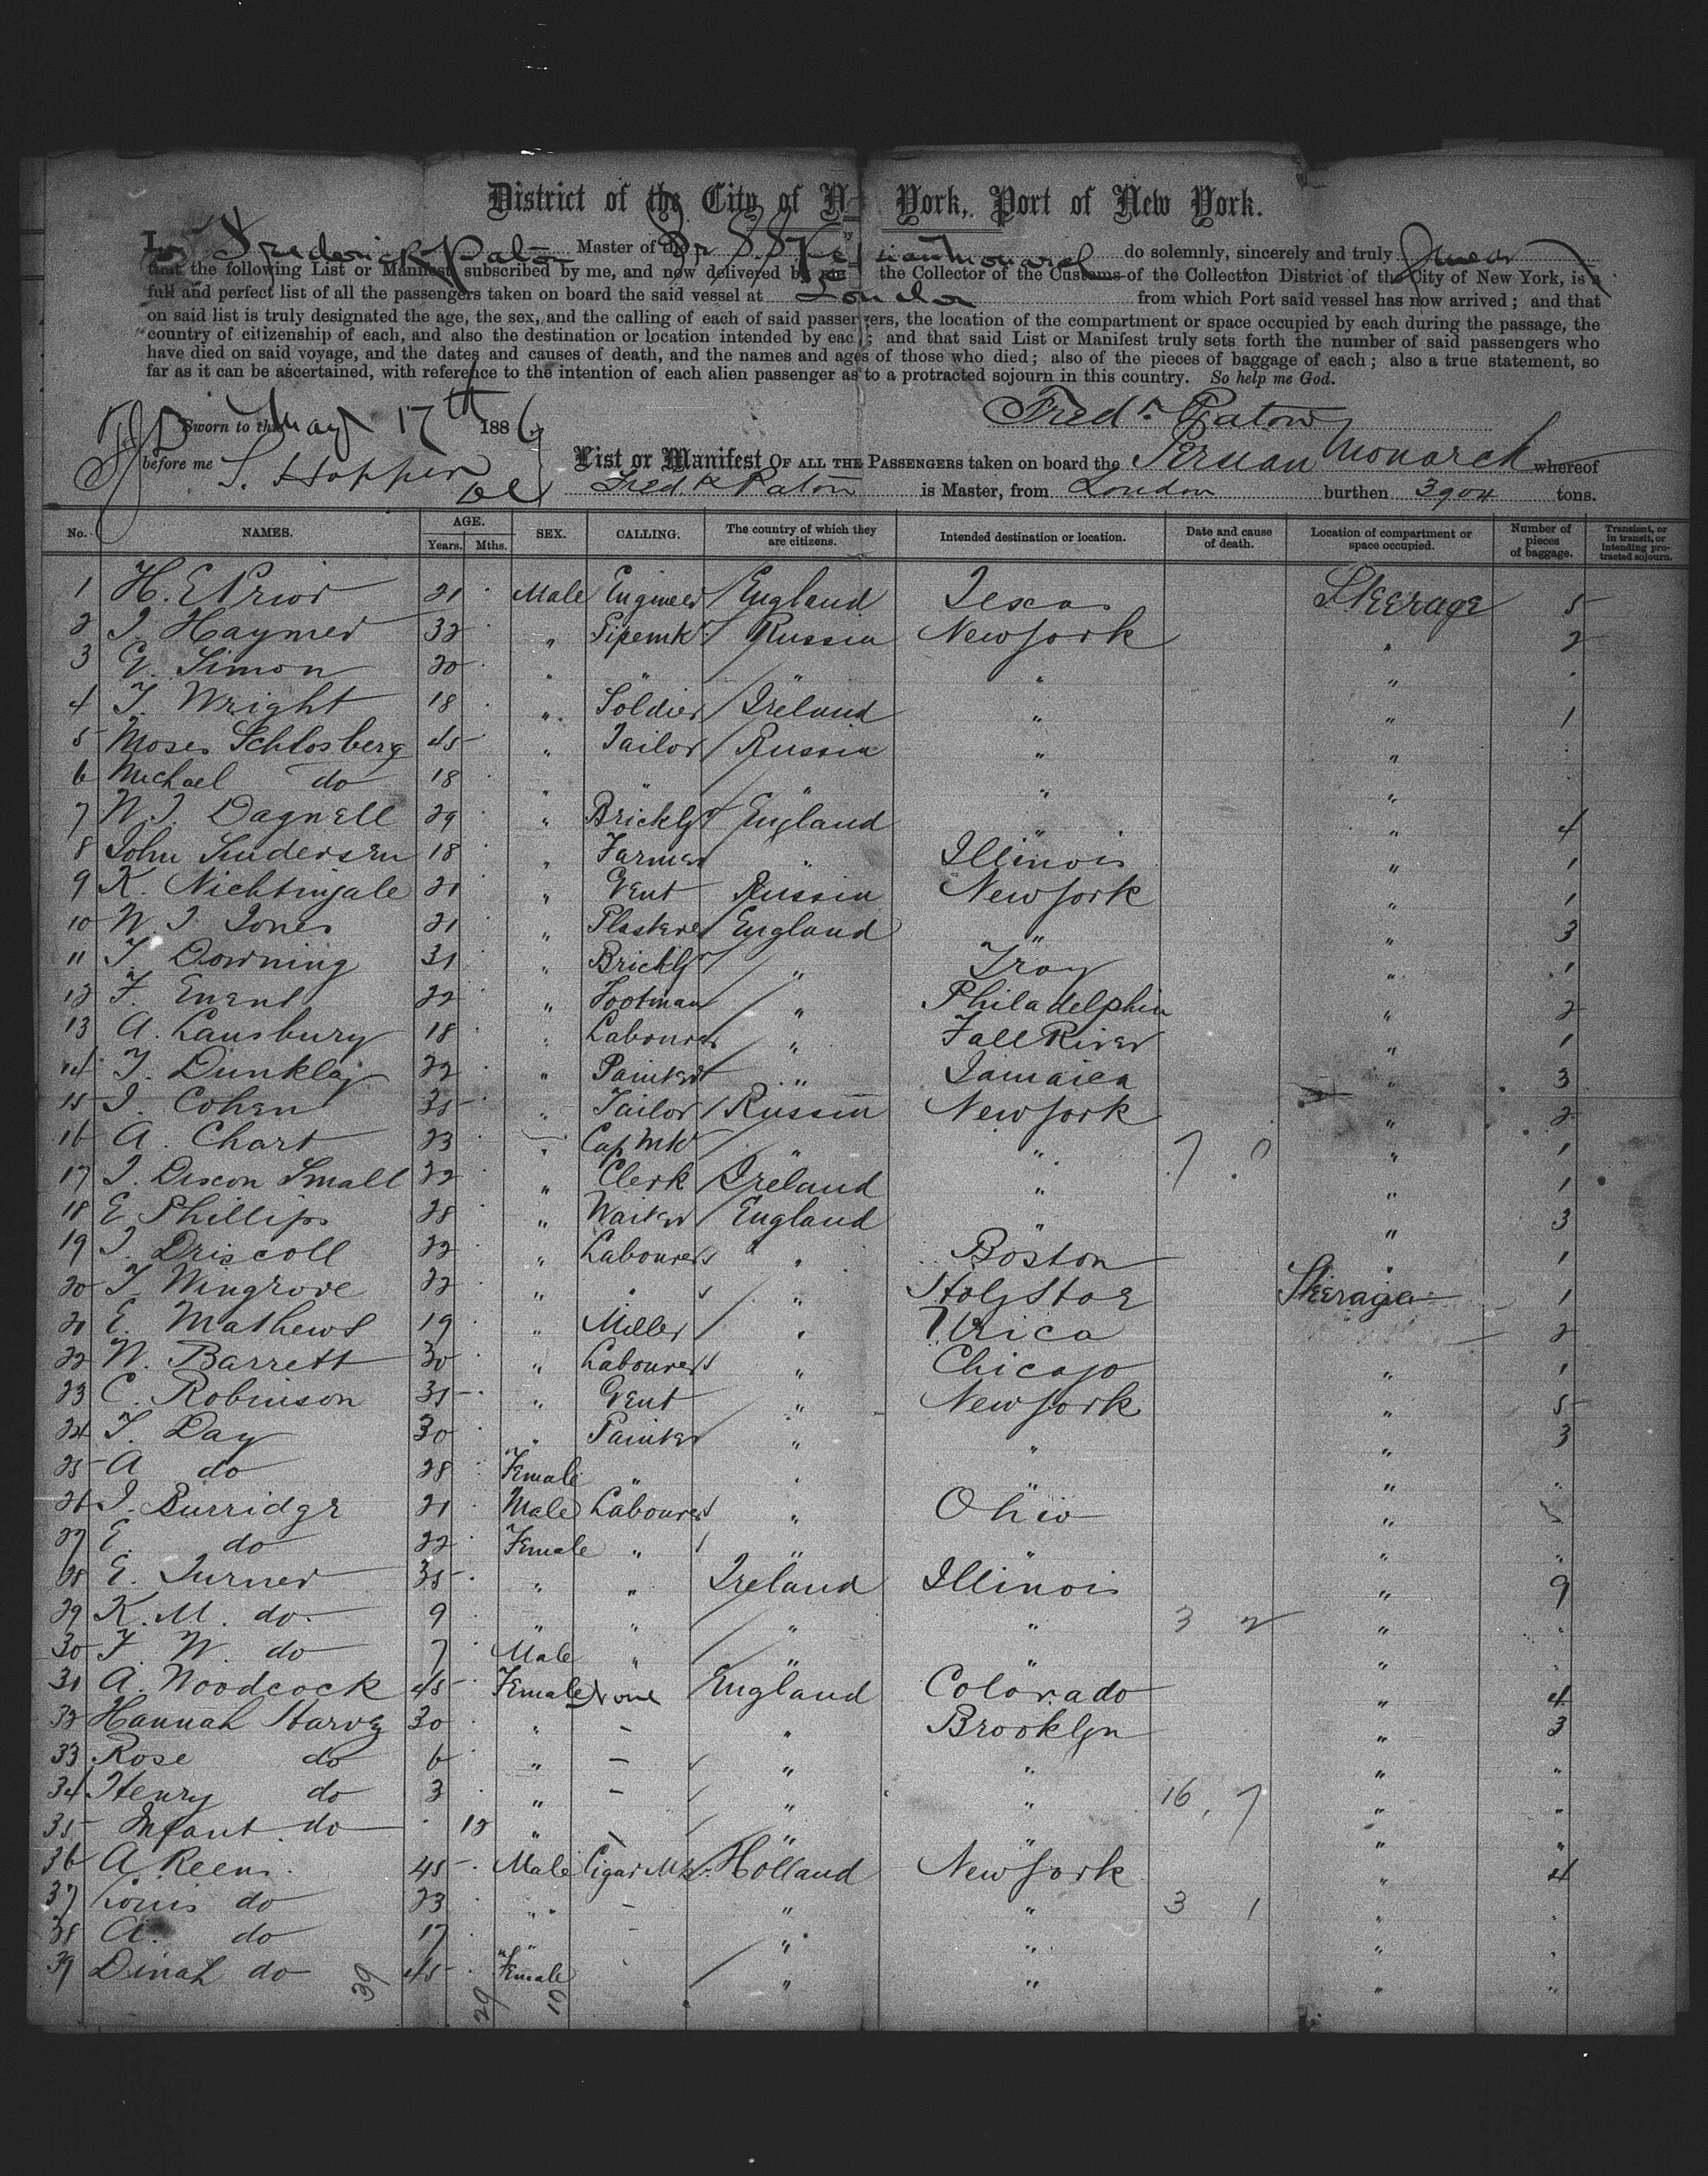 District of the City of N York, Port of New York.
I, Frederick Paton Master of the Br SS Persian Monarch do solemnly, sincerely and truly Swear
that the following List or Manifest subscribed by me, and now delivered by me the Collector of the Customs of the Collection District of the City of New York, is a
full and perfect list of all the passengers taken on board the said vessel at London from which Port said vessel has now arrived; and that
on said list is truly designated the age, the sex, and the calling of each of said passengers, the location of the compartment or space occupied by each during the passage, the
country of citizenship of each, and also the destination or location intended by each; and that said List or Manifest truly sets forth the number of said passengers who
have died on said voyage, and the dates and causes of death, and the names and ages of those who died; also of the pieces of baggage of each; also a true statement, so
far as it can be ascertained, with reference to the intention of each alien passenger as to a protracted sojourn in this country. So help me God.
Sworn to this May 17th 1886 Fredk Paton
before me S. Hopper List or Manifest OF ALL THE PASSENGERS taken on board the Persian Monarch whereof
Fredk Paton is Master, from London burthen 3904 tons.
No. NAMES. AGE. Years. Mths. SEX. CALLING. The country of which they are citizens. Intended destination or location. Date and cause of death. Location of compartment or space occupied. Number of pieces of baggage. Transient, or in transit, or intending protracted sojourn.
1 H. E Prior 21 Male Engineer England Texas Steerage 5
2 I. Haymer 32 " Pipemkr Russia New York " 2
3 G. Simon 20 " " " " "
4 T. Wright 18 " Soldier Ireland " " 1
5 Moses Schlosberg 45 " Tailor Russia " "
6 Michael do 18 " " " " "
7 W. J. Dagnell 29 " Bricklyr England " " 4
8 John Sudersen 18 " Farmer " Illinois " 1
9 K. Nichtinjale 21 " Gent Russia New York " 1
10 W. J. Jones 21 " Plasterer England " " 3
11 T. Downing 31 " Bricklyr " Troy " 1
12 F. Enent 22 " Footman " Philadelphia " 2
13 A. Lansbury 18 " Labourer " Fall River " 1
14 T. Dunkley 22 " Painter " Jamaica " 3
15 I. Cohen 35 " Tailor Russia New York " 2
16 A. Chart 23 " Cap Mkr " " 7 0 " 1
17 J. Dixon Small 22 " Clerk Ireland " " 1
18 E Phillips 28 " Waiter England " " 3
19 J. Driscoll 22 " Labourer " Boston " 1
20 T. Wingrove 22 " " " Steerage 1
21 E. Mathews 19 " Miller " Utica 2
22 W. Barrett 30 " Labourer " Chicajo " 1
23 C. Robinson 35 " Gent " New York " 5
24 T. Day 30 " Painter " " " 3
25 A do 28 Female " " " " "
26 J. Burridge 21 Male Labourer " Ohio "
27 E. do 22 Female " " " " "
28 E. Turner 35 " " Ireland Illinois " 9
29 K. M. do 9 " " " " 3 2 "
30 F. W. do 7 Male " " " "
31 A. Woodcock 45 Female None England Colorado " 4
32 Hannah Harvey 30 " – " Brooklyn " 3
33 Rose do 6 " – " " " "
34 Henry do 3 " – " " 16 7 " "
35 Infant do 12 " – " " " "
36 A Reens 45 Male Cigar Mkr Holland New York " 4
37 Louis do 23 " – " " 3 1 "
38 A. do 17 " – " " "
39 Dinah do 45 Female " " " "
39 29 12